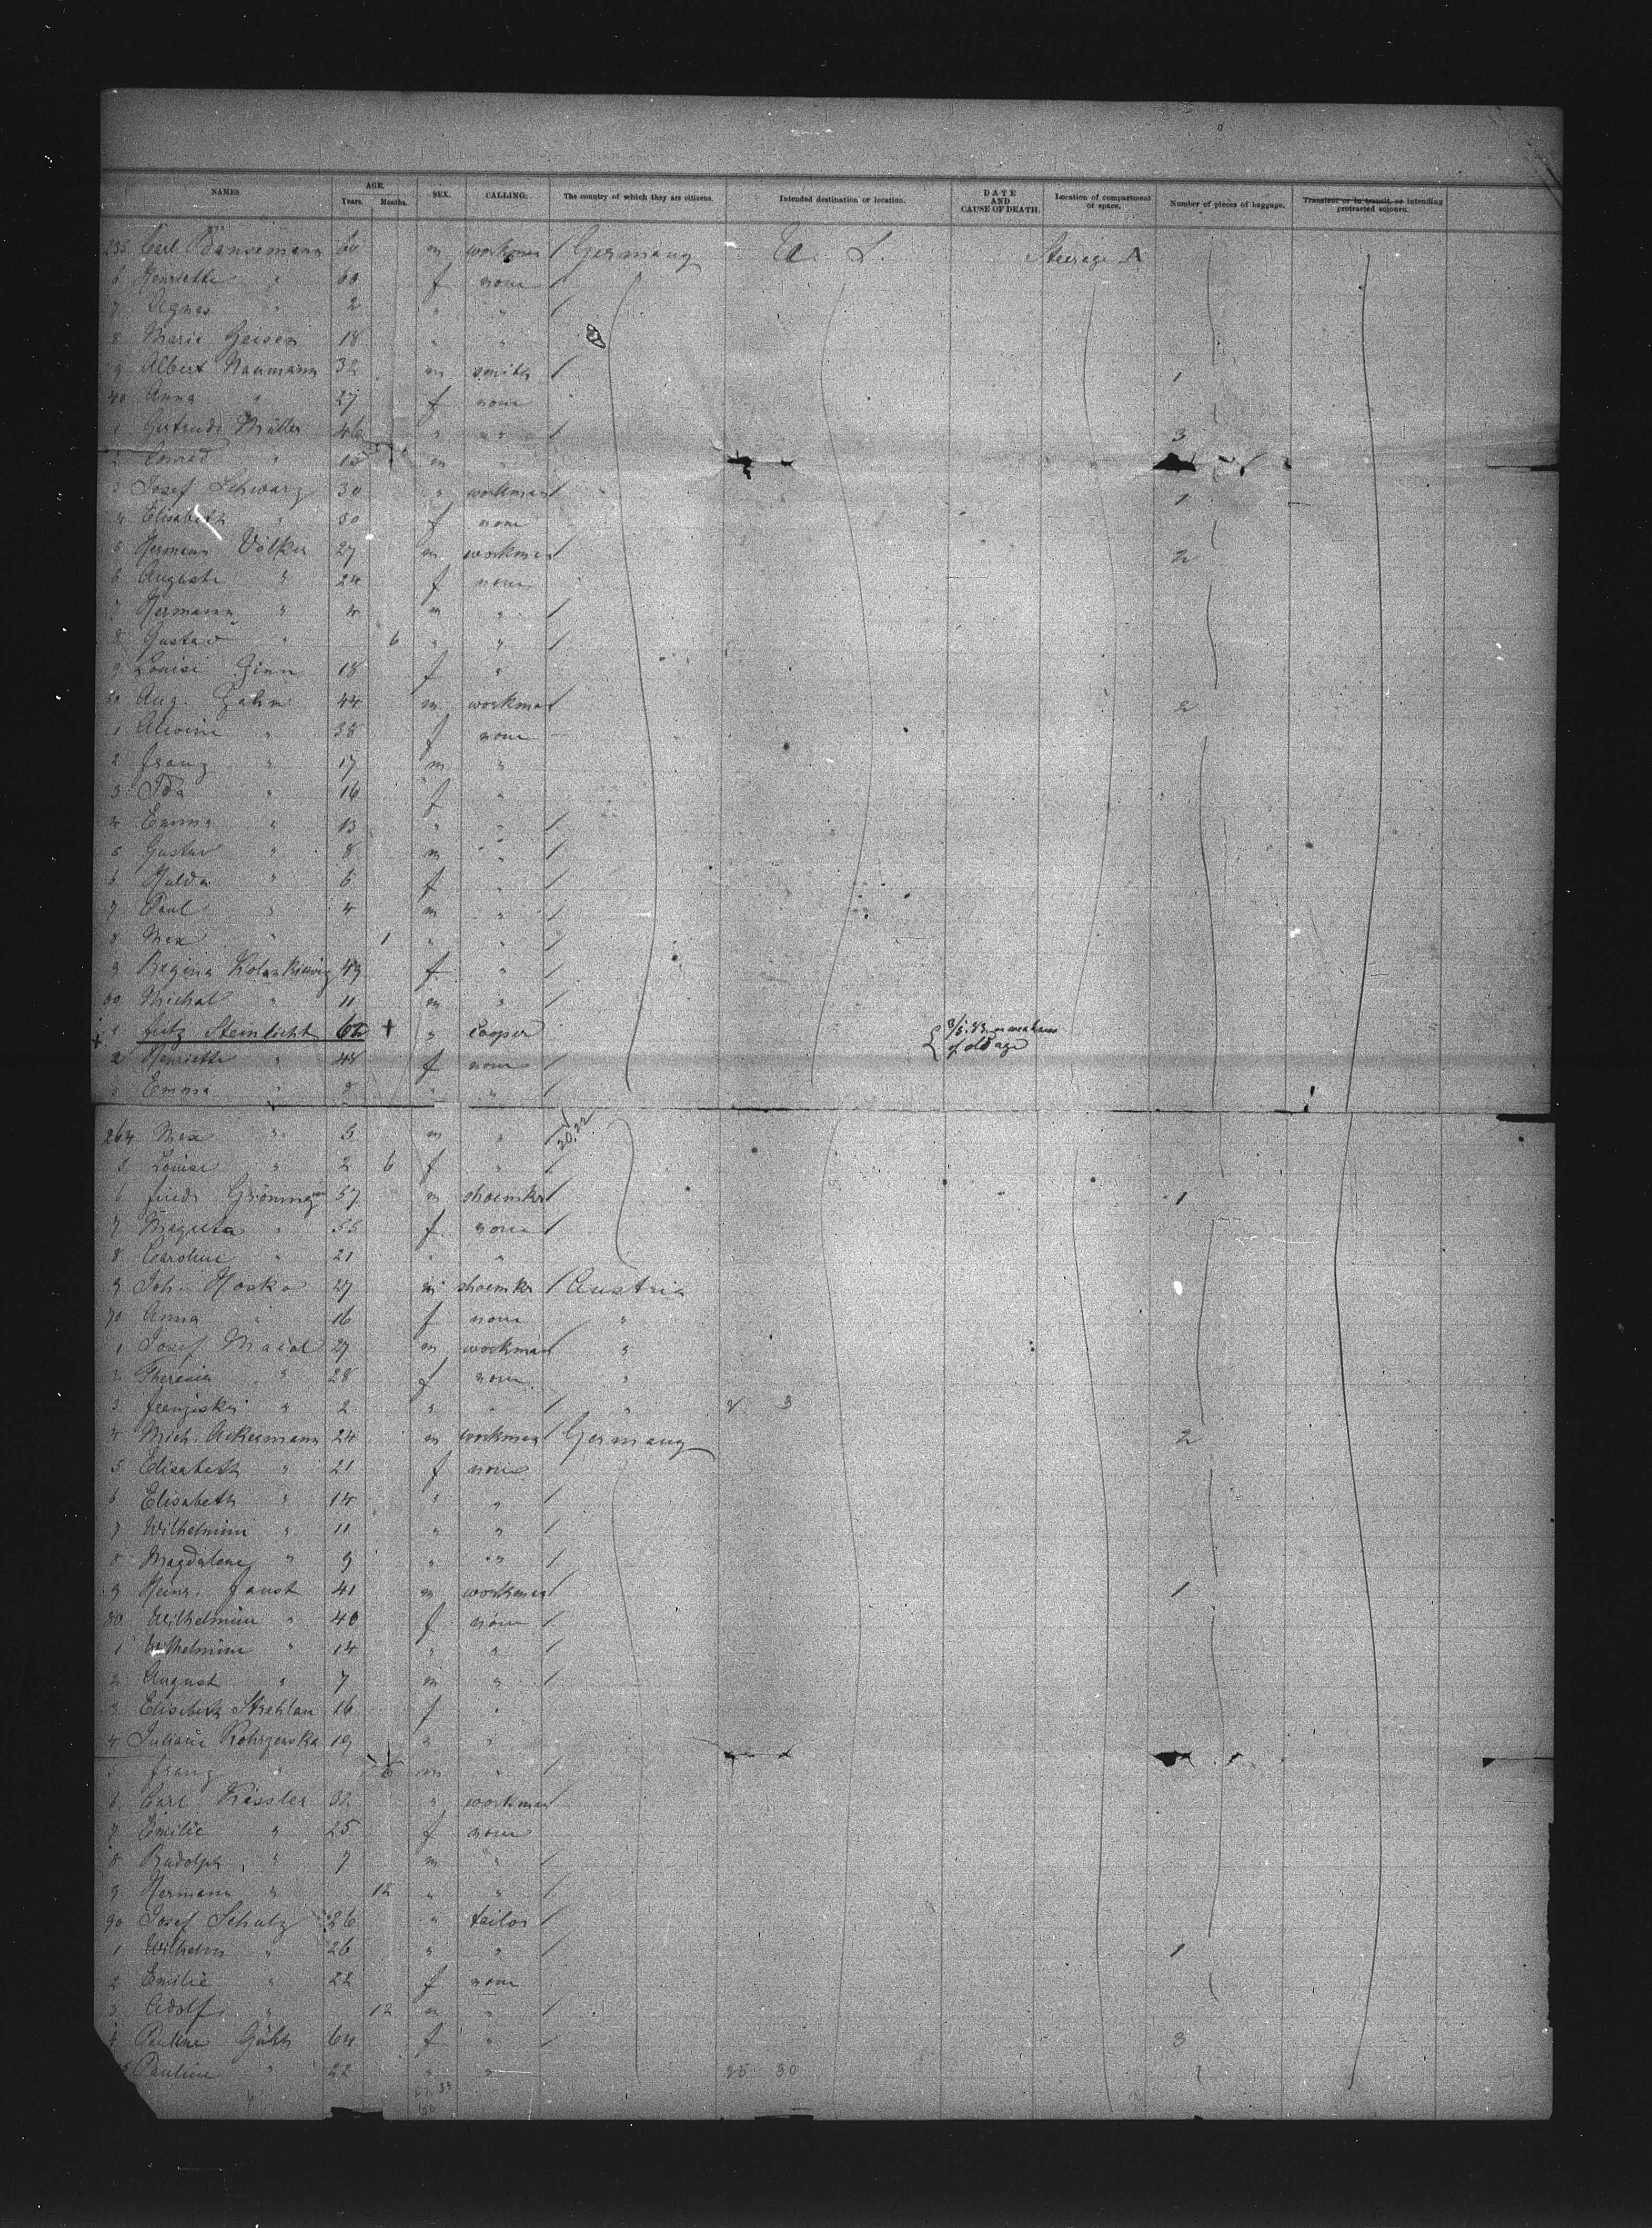 NAMES AGE. Years. Months. SEX. CALLING. The country of which they are citizens. Intended destination or location. DATE AND CAUSE OF DEATH. Location of compartment or space. Number of pieces of baggage. Transient or in transit, or intending protracted sojourn.
235 Carl Bansemann 60 m workman / Germany U. S. Steerage A
6 Henriette " 60 f none /
7 Agnes " 2 " " /
8 Marie 18 " "
9 Albert Naumann 32 m smith / 1
40 Anna " 27 f none
1 Gertrude Müller 46 " " / 3
2 Conrad " m "
3 Josef Schwarz 30 " workman / 1
4 Elisabeth " 30 f none
5 Hermann Völker 27 m workman / 2
6 Auguste " 24 f none
7 Hermann " 4 m " /
8 Gustav " 6 " " /
9 Louise Zinn 18 f "
50 Aug. Zahn 44 m workman / 2
1 Alwine " 38 f none
2 Franz " 17 m "
3 Ida " 16 f "
4 Emma " 13 " " /
5 Gustav " 8 m " /
6 Hulda " 6 f " /
7 Paul " 4 m " /
8 Max " 1 " " /
9 Regina 49 f " /
60 Michal " 11 m " /
+ 1 Fritz Steinlicht + " cooper of old age
2 Henriette " 48 f none /
3 Emma " 8 " " /
264 Max " 5 m " / 20.22
5 Louise " 2 6 f " /
6 57 m shoemker / 1
7 " 55 f none /
8 Caroline " 21 " "
9 Joh. Hosko 27 m shoemker / Austria
70 Anna " 16 f none "
1 Josef 27 m workman / "
2 Theresia " 28 f none "
3 Franziska " 2 " " / " 3
4 Mich. Ackermann 24 m workman / Germany 2
5 Elisabeth " 21 f none
6 Elisabeth " 14 " " /
7 Wilhelmine " 11 " " /
8 Magdalene " 9 " " /
9 Heinr. Faust 41 m workman / 1
80 Wilhelmine " 40 f none /
1 Wilhelmine " 14 " " /
2 August " 7 m " /
3 Elisabeth Strehlau 16 f "
4 Juliane 19 " "
5 Franz " 6 m " /
6 Carl Kessler 32 " workman /
7 Emilie " 25 f none
8 Rudolph " 7 m " /
9 Hermann " 12 " " /
90 Josef Schulz 26 " tailor /
1 Wilhelm " 26 " " / 1
2 Emilie " 22 f none
3 Adolf " 12 m " /
4 Pauline Güth 64 f " / 3
5 Pauline " 22 " " 25 30